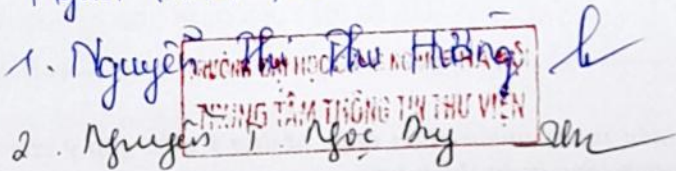 1. Nguyễn Thị Thu Hằng
TRUNG TÂM THÔNG TIN THƯ VIỆN
2. Nguyễn T. Ngọc Duy